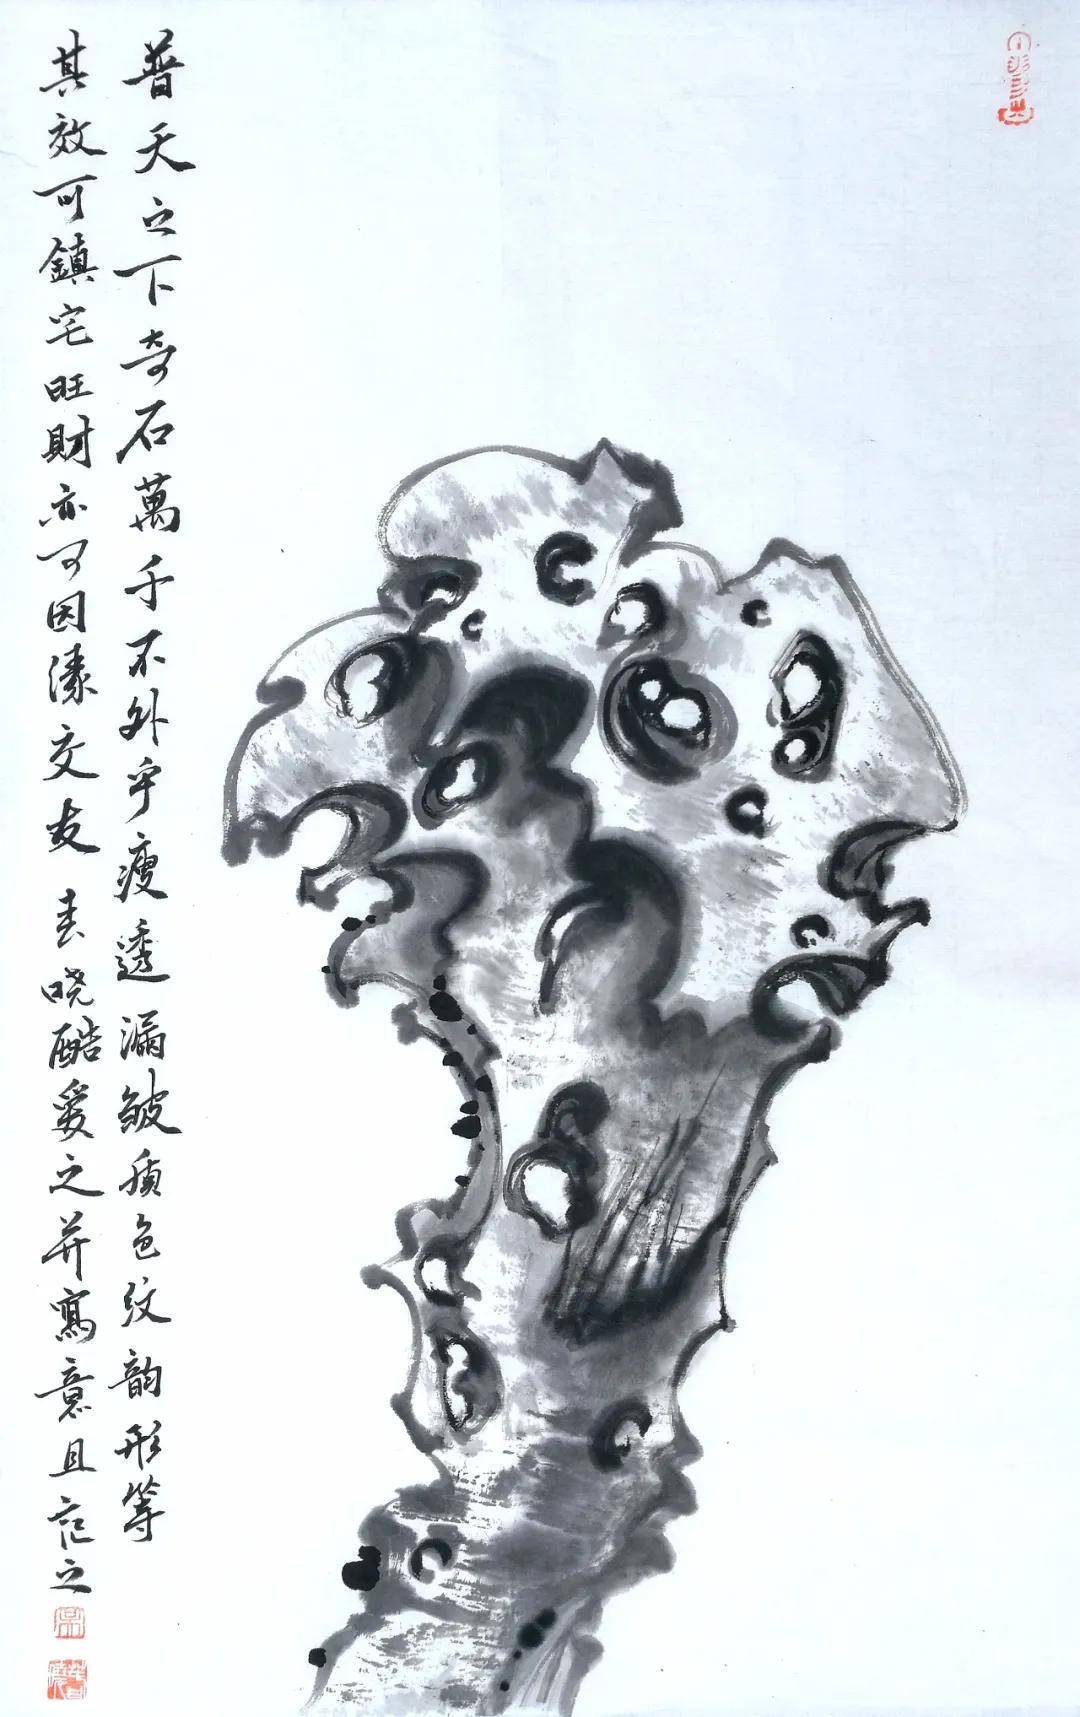 普天之下奇石萬千不外乎瘦透漏皺质色纹韵形等
其效可鎮宅旺財亦可因缘交友 春晓酷爱之并寫意且记之